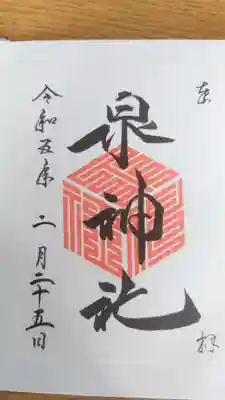 奉
拝
泉神社
令和五年 二月二十五日